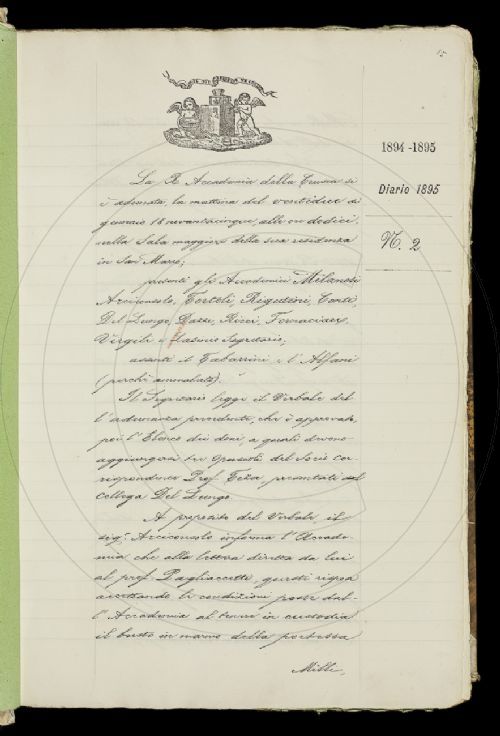 15
1894-1895
Diario 1895
N. 2
La R. Accademia della Crusca si
è adunata, la mattina del ventidue di
gennaio 18novantacinque, alle ore dodici,
nella Sala maggiore della sua residenza
in San Marco;
presenti gli Accademici Milanesi
Arciconsolo, Tortoli, Rigutini, Conti,
Del Lungo, Dazzi, Rizzi, Fornaciari,
Virgili e Segretario;
assenti il Tabarrini e l'Alfani
(perchè ammalato).
Il Segretario legge il Verbale del-
l'adunanza precedente, che è approvato,
poi l'Elenco dei doni, a quali devono
aggiungersi tre Opuscoli del Socio Cor-
rispondente Prof. Teza presentati dal
Collega Del Lungo.
A proposito del Verbale, il
sig.r Arciconsolo informa l'Accade-
mia che alla lettera diretta da lui
al prof. Pagliaccetti, questi rispose
accettando le condizioni poste dal-
l'Accademia al tenere in custodia
il busto in marmo della poetessa
Milli,